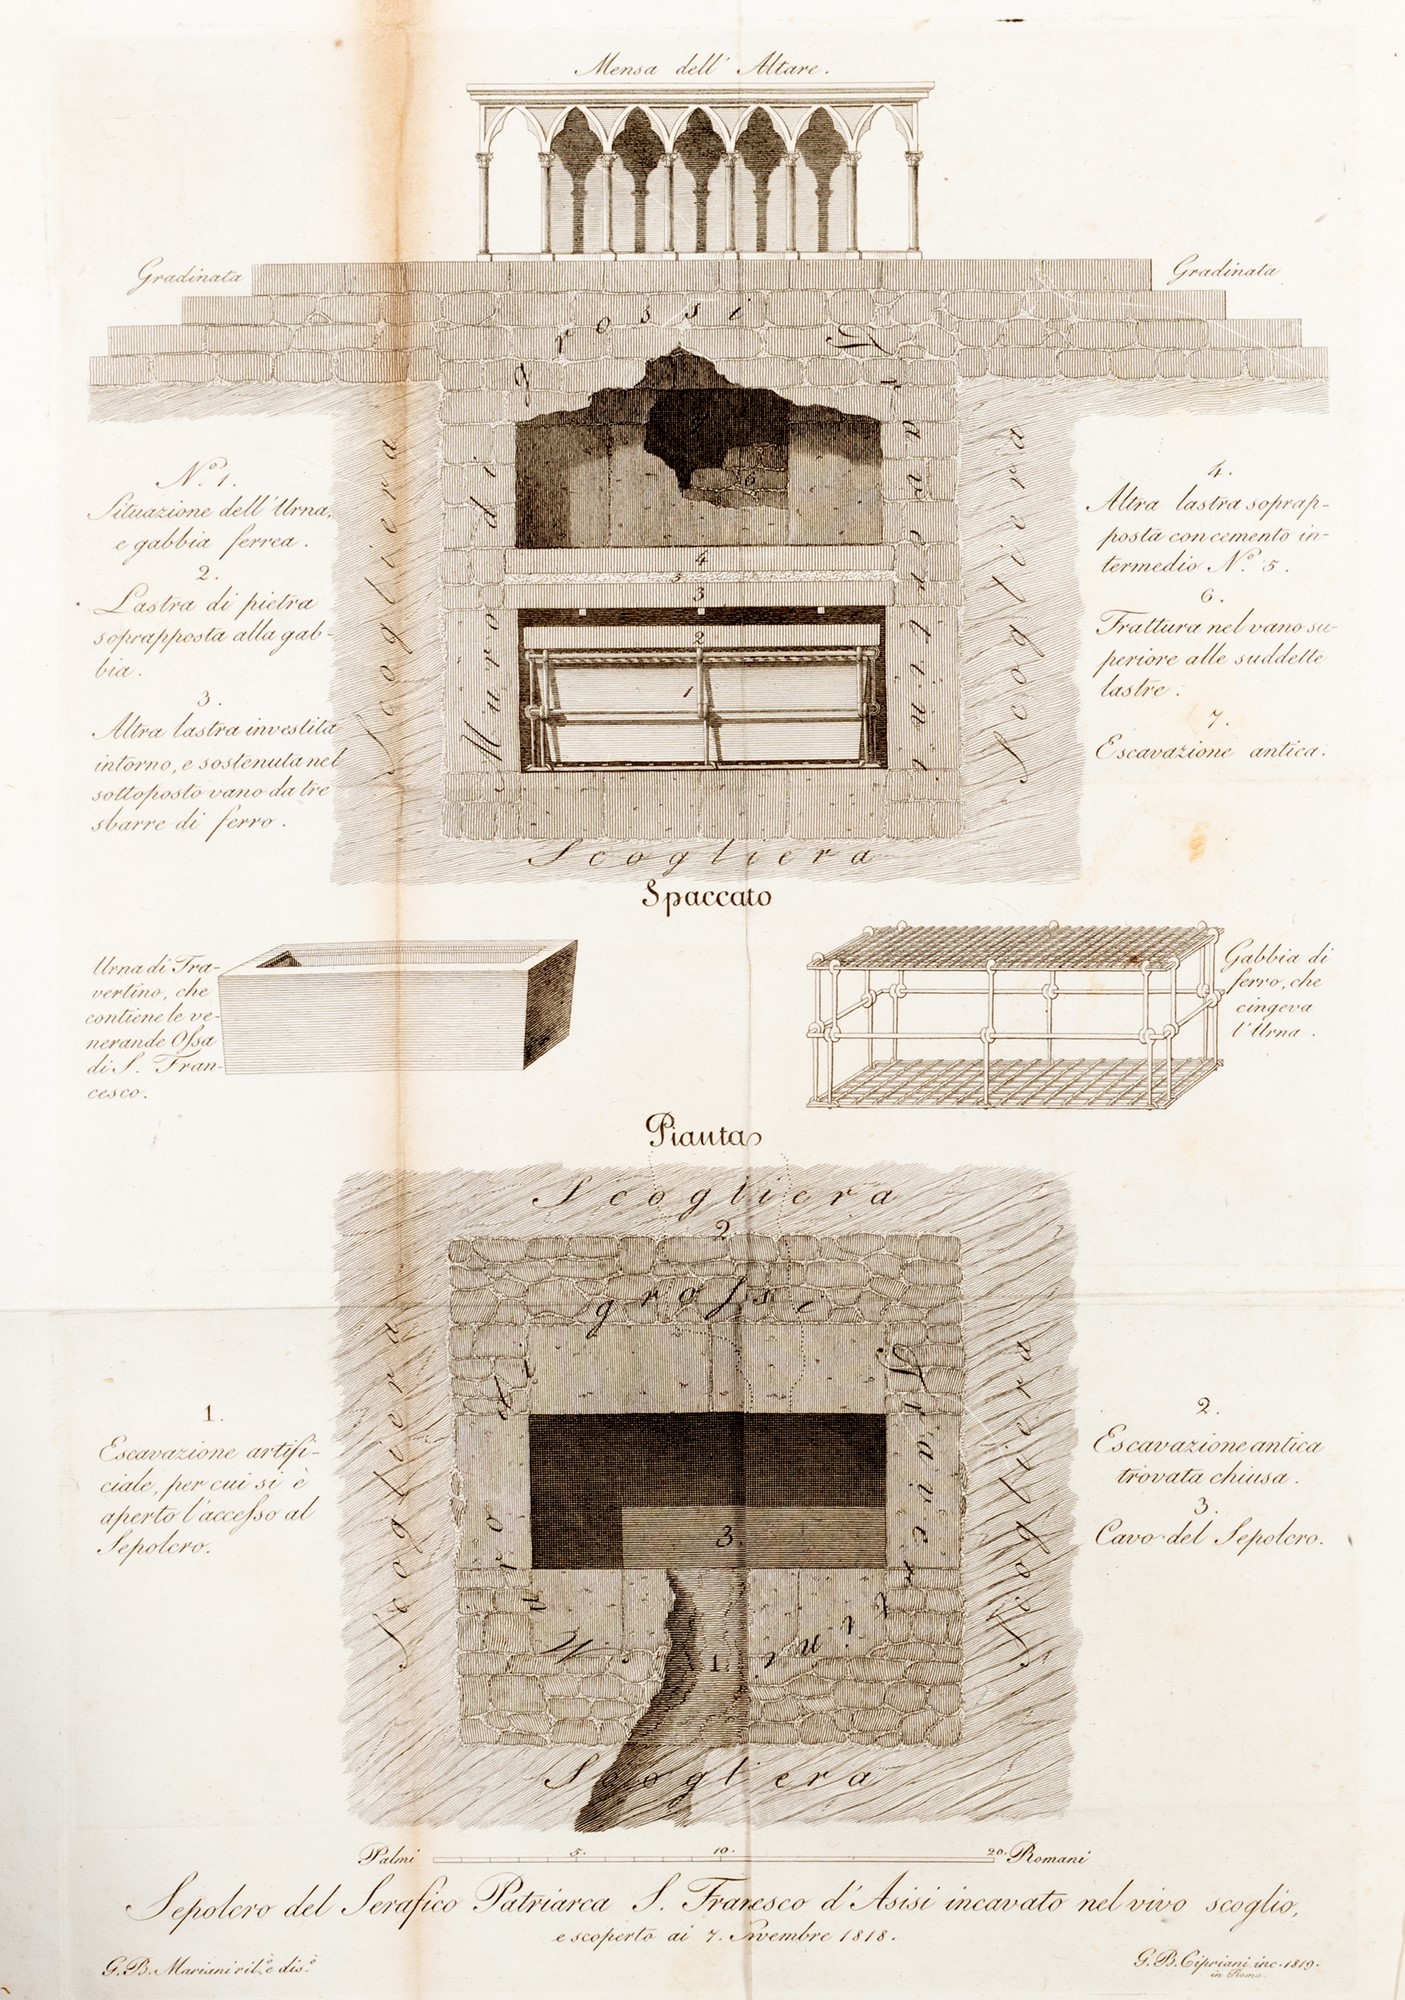 Mensa dell' Altare.
Gradinata
Gradinata
Muro di grossi Travertini
Scogliera
Scogliera
7
6
4
5
3
2
1
Scogliera
N.o 1.
Situazione dell'Urna,
e gabbia ferrea.
2.
Lastra di pietra
soprapposta alla gab-
bia.
3.
Altra lastra investita
intorno, e sostenuta nel
sottoposto vano da tre
sbarre di ferro.
4.
Altra lastra soprap-
posta con cemento in-
termedio N.o 5.
6.
Frattura nel vano su-
periore alle suddette
lastre.
7.
Escavazione antica.
Spaccato
Urna di Tra-
vertino, che
contiene le ve-
nerande Ossa
di S. Fran-
cesco.
Gabbia di
ferro, che
cingeva
l'Urna.
Pianta
Scogliera
2
Muro di grossi Travertini
Scogliera
Scogliera
3.
1.
Scogliera
1.
Escavazione artifi-
ciale, per cui si è
aperto l'accesso al
Sepolcro.
2.
Escavazione antica
trovata chiusa.
3.
Cavo del Sepolcro.
Palmi 5. 10. 20. Romani
Sepolcro del Serafico Patriarca S. Francesco d'Asisi incavato nel vivo scoglio,
e scoperto ai 7. Novembre 1818.
G.B. Mariani ril.ò e dis.ò
G.B. Cipriani inc. 1819.
in Roma.